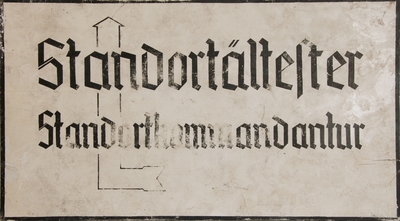 Standortälteſter
Standortkommandantur